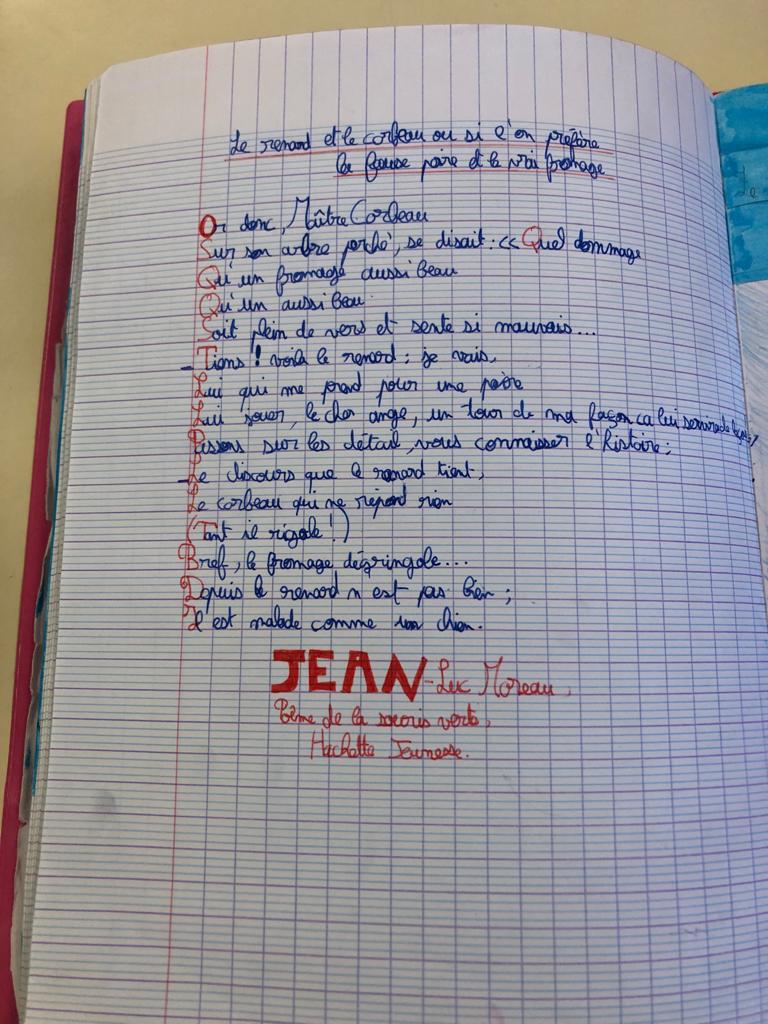 Le renard et le corbeau ou si l'on préfère
la fause poire et le vrai fromage
Or donc, Maître Corbeau
Sur son arbre perché, se disait : << Quel dommage
Qu'un fromage aussi beau
Qu'un aussi beau
Soit plein de vers et sente si mauvais...
_ Tiens ! voilà le renard : je vais,
Lui qui me prend pour une poire
Lui jouer, le cher ange, un tour de ma façon ca lui servira de leçon !
Passons sur les détail, vous connaisser l'histoire ;
_ Le discours que le renard tient,
Le corbeau qui ne répond rien
(Tant il rigole !)
Bref, le fromage dégringole...
Depuis le renard n est pas bien ;
Il est malade comme un chien.
JEAN-Luc Moreau,
Poème de la souris verte,
Hachette Jeunesse.